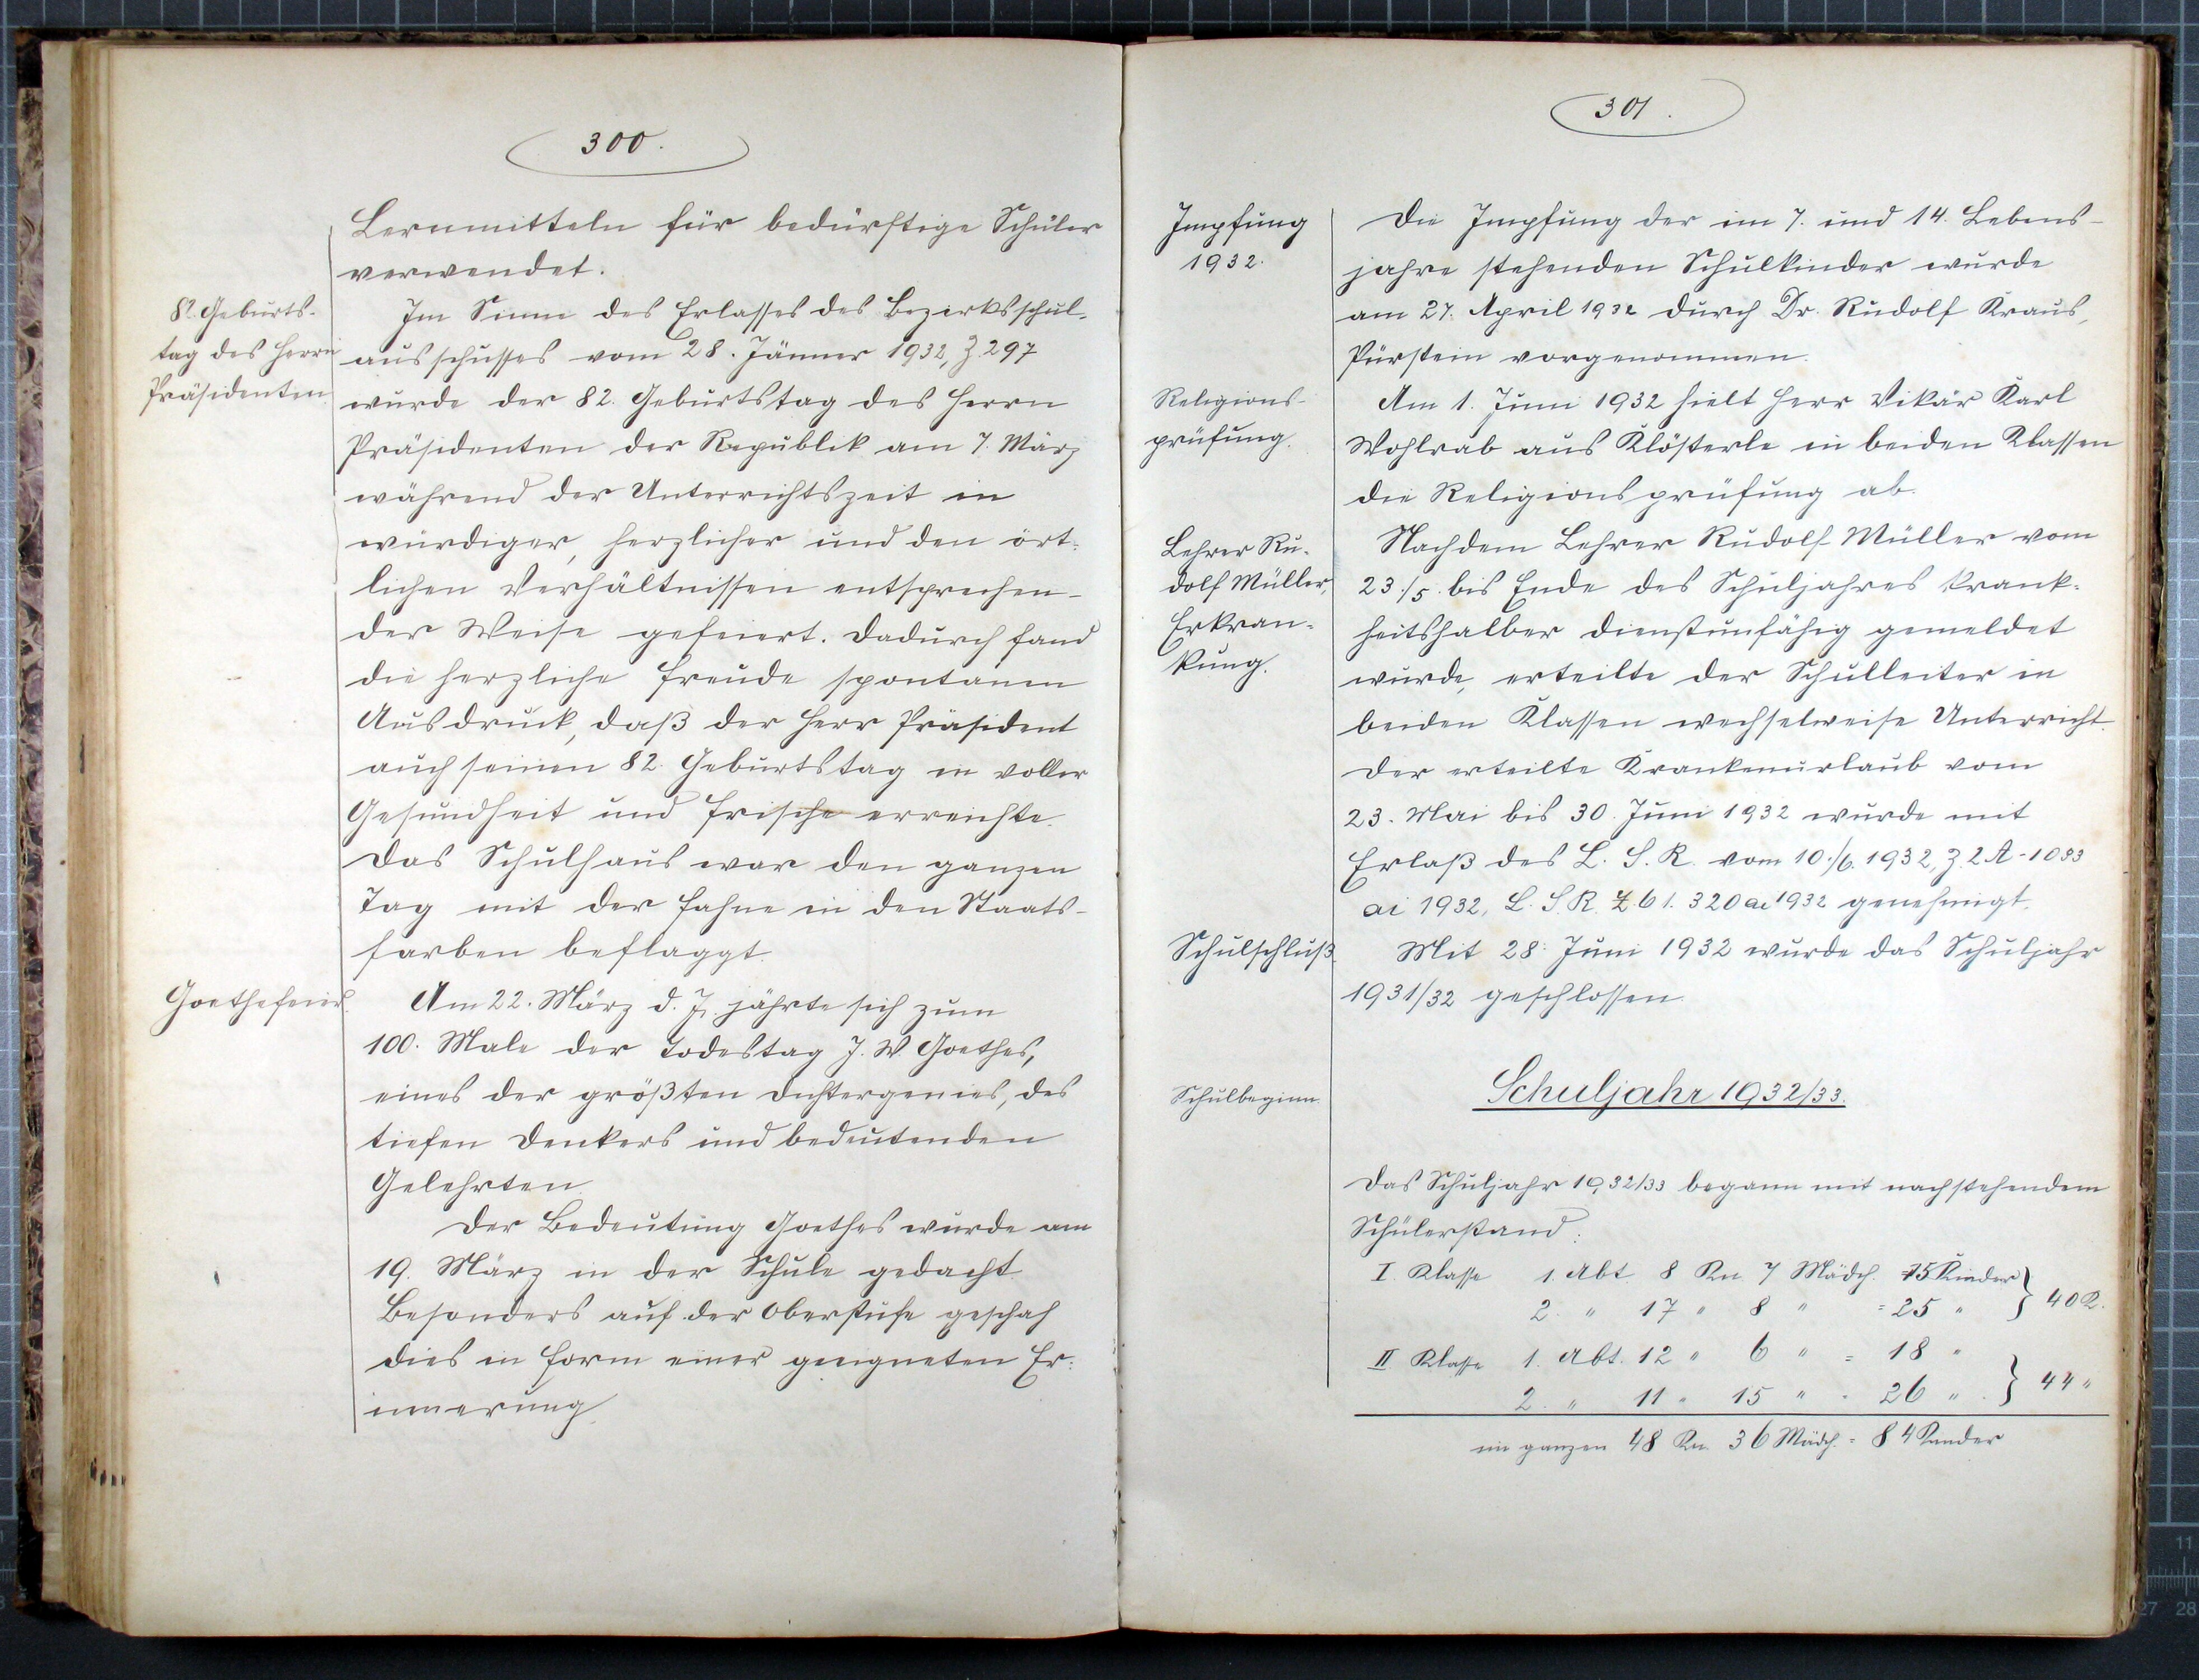 300.
Lernmitteln für bedürftige Schüler
verwendet.
82. Geburts-
tag des Herrn
Präsidenten
Im Sinne des Erlasses des Bezirksschul-
ausschusses vom 28. Jänner 1932, Z. 297
wurde der 82. Geburtstag des Herrn
Präsidenten der Republik am 7. März
während der Unterrichtszeit in
würdiger, herzlicher und den ört-
lichen Verhältnissen entsprechen-
der Weise gefeiert. Dadurch fand
die herzliche Freude spontanen
Ausdruck, daß der Herr Präsident
auch seinen 82. Geburtstag in voller
Gesundheit und Frische erreichte.
Das Schulhaus war den ganzen
Tag mit der Fahne in den Staats-
farben beflaggt.
Goethefeier.
Am 22. März d. J. jährte sich zum
100. Male der Todestag J. W. Goethes,
eines der größten Dichtergenies, des
tiefen Denkers und bedeutenden
Gelehrten.
Der Bedeutung Goethes wurde am
19. März in der Schule gedacht.
Besonders auf der Oberstufe geschah
dies in Form einer geeigneten Er-
innerung.
301.
Impfung
1932.
Die Impfung der im 7. und 14. Lebens-
jahre stehenden Schulkinder wurde
am 27. April 1932 durch Dr. Rudolf Kraus,
Pürstein vorgenommen.
Religions-
prüfung.
Am 1. Juni 1932 hielt Herr Vikär Karl
Wohlrab aus Klösterle in beiden Klassen
die Religionsprüfung ab.
Lehrer Ru-
dolf Müller,
Erkran-
kung.
Nachdem Lehrer Rudolf Müller vom
23./5. bis Ende des Schuljahres krank-
heitshalber dienstunfähig gemeldet
wurde, erteilte der Schulleiter in
beiden Klassen wechselweise Unterricht.
Der erteilte Krankenurlaub vom
23. Mai bis 30. Juni 1932 wurde mit
Erlaß des L. S. R. vom 10./6. 1932, Z. 2 A-1033
ai 1932, L. S. R. Z 61. 320 ai 1932 genehmigt.
Schulschluß.
Mit 28. Juni 1932 wurde das Schuljahr
1931/32 geschlossen.
Schuljahr 1932/33.
Schulbeginn.
Das Schuljahr 1932/33 begann mit nachstehendem
Schülerstand:
I. Klasse 1. Abt. 8 Kn. 7 Mädch. 15 Kinder } 40 K.
2. " 17 " 8 " = 25 "
II Klasse 1. Abt. 12 " 6 " = 18 "
2. " 11 " 15 " = 26 " } 44 "
im ganzen 48 Kn. 36 Mädch. = 84 Kinder